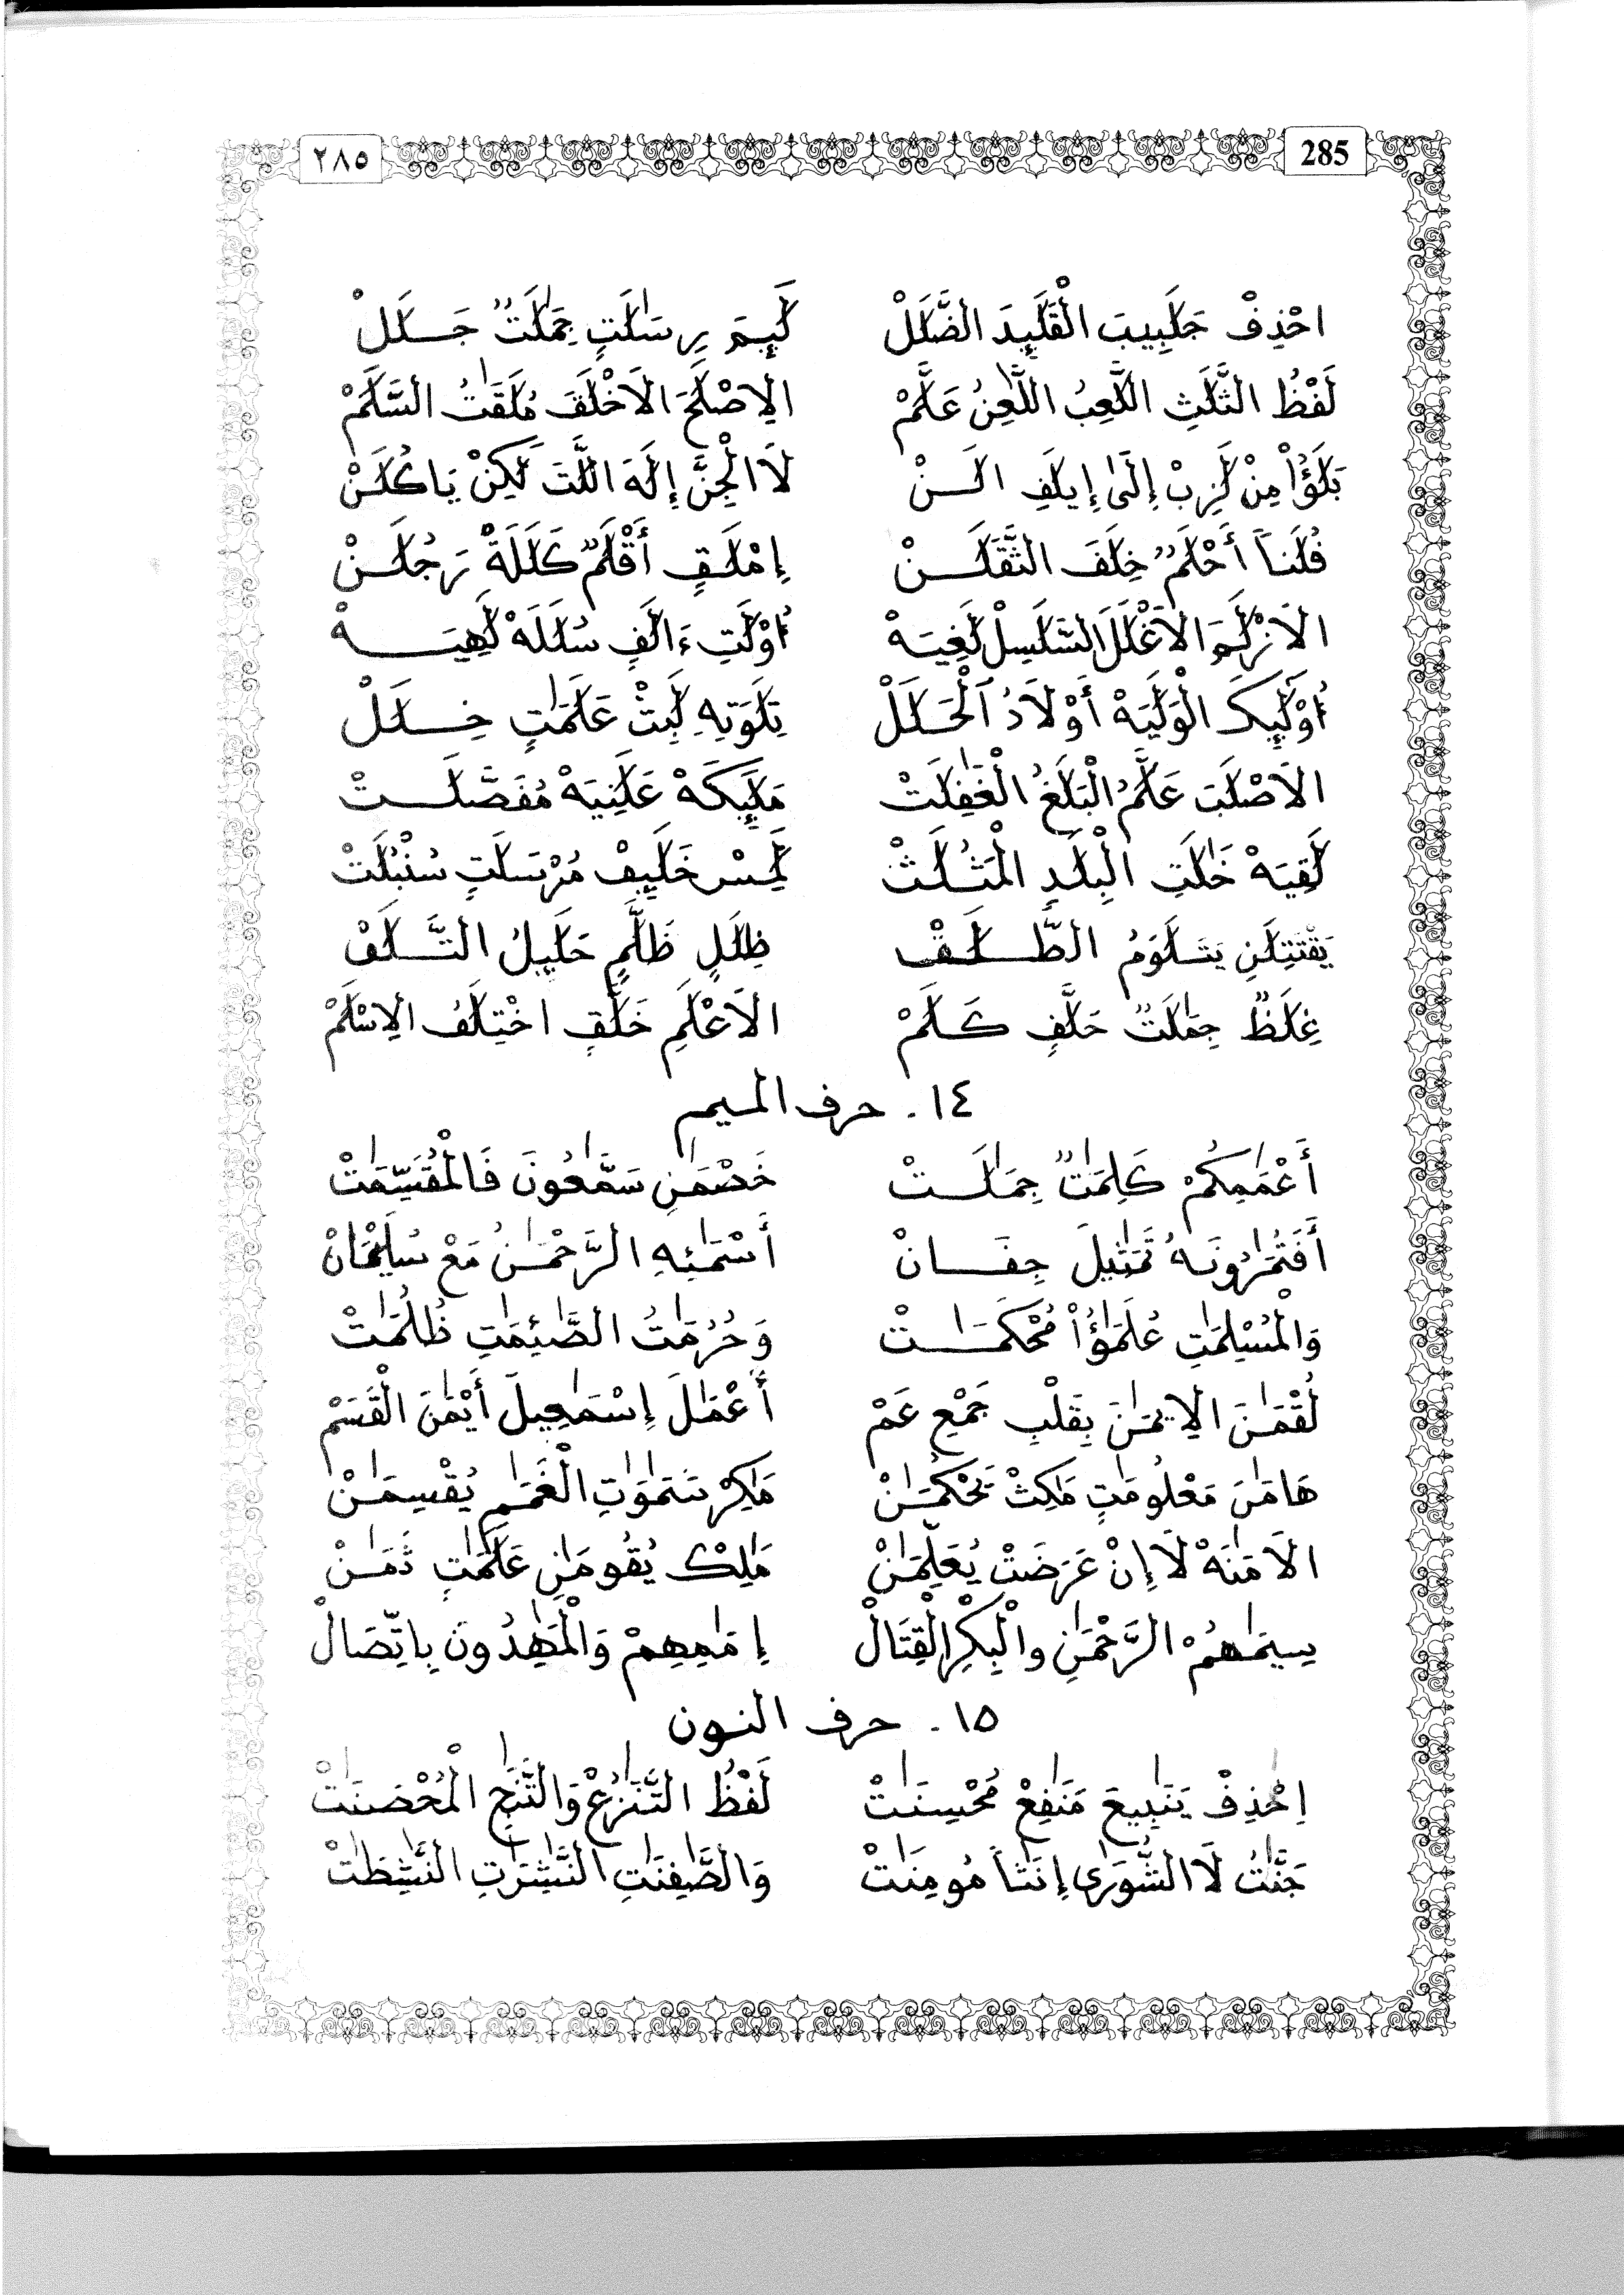 285 ٢٨٥
احْذِفْ جَلَٰبِيبَ الْقَلَٰئِدَ الضَّلَلْ لَٰئِمَ رِسَٰلَٰتٍ جِمَٰلَتٌ حَلَلْ
لَفْظُ الثَّلَٰثِ اللَّعِبُ اللَّعِنُ عَلَّمْ الِاصْلَحَ الَاخْلَقَ مُلَقَٰتُ السَّلَمْ
بَلَٰؤُاْ مِنْ لَزِبْ إِلَىٰ إِيلَفِ الَنْ لَا الْجِنَّ إِلَهَ اللَّتَ لَكِنْ يَا كُلَنْ
فُلَناً أَحْلَمُ خِلَفَ الثَّقَلَنْ إِمْلَقٍ أَقْلَمٌ كَلَلَةْ رَجُلَنْ
الَازْلَمَ الَاغْلَلَ السَّلَسِلْ لَغِيَهْ أُوْلَتِ ءَالَفٍ سُلَلَهْ لَهِيَهْ
أُوْلَئِكَ الْوَلَيَهْ أَوْلَادُ الْحَلَلْ تِلَوَتِهِ لَبِثْ عَلَمَٰتٍ خِلَلْ
الَاصْلَبَ عَلَّمُ الْبَلَغُ الْغَٰفِلَتْ مَلَئِكَهْ عَلَنِيَهْ مُفَصَّلَتْ
لَقِيَهْ خَٰلَتِ الْبِلَدِ الْمَثُلَتْ لَمَسْ خَلَئِفْ مُرْسَلَتِ سُنْبُلَتْ
يَقْتَتِلَنِ يَتَلَوَمُ الطَّلَقْ ظِلَلٍ ظَلَّمٍ حَلَئِلُ التَّلَقْ
غِلَظٌ جِمَٰلَتٌ حَلَّفٍ كَلَمْ الَاعْلَمِ خَلَّقٍ اخْتِلَفُ الِاسْلَمْ
١٤. حرف الميم
أَعْمَٰمِكُمْ كَلِمَٰتٌ جِمَٰلَتْ خَصْمَٰنِ سَمَّٰعُونَ فَالْمُقَسِّمَٰتْ
أَفَتُمَٰرُونَهُ تَمَٰثِيلَ جِفَانْ أَسْمَٰئِهِ الرَّحْمَٰنُ مَعْ سُلَيْمَٰانْ
وَالْمُسْلِمَٰتِ عُلَمَٰؤُاْ مُحْكَمَٰتْ وَحُرُمَٰتُ الصَّٰئِمَٰتِ ظُلُمَٰتْ
لُقْمَٰنَ الِايمَٰنَ بِقَلْبِ جَمْعِ عَمْ أَعْمَٰلَ إِسْمَٰعِيلَ أَيْمَٰنَ الْقَسَمْ
هَامَٰنَ مَعْلُومَٰتٍ مَٰكِثْ يَحْكُمَٰنْ مَٰكِرْ سَمَٰوَٰتِ الْغَمَٰمِ يُقْسِمَٰنْ
الَامَٰنَهْ لَا إِنْ عَرَضَتْ يُعَلِّمَٰنْ مَٰلِكْ يُقُومَٰنِ عَلَٰمَٰتٍ ثَمَٰنْ
سِيمَٰهُمْ الرَّحْمَٰنِ والْبِكْرِ الْقِتَالْ إِمَٰمِهِمْ وَالْمَٰهِدُونَ بِاتِّصَالْ
١٥. حرف النون
اِحْذِفْ يَنَٰبِيعَ مَنَٰفِعْ مُحْسِنَٰتْ لَفْظُ التَّنَٰزُعْ وَالتَّنَٰجِ الْمُحْصَنَٰتْ
جَنَّٰتُ لَا الشُّورَىٰ إِنَٰثاً مُومِنَٰتْ وَالصَّٰفِنَٰتِ النَّٰشِرَٰتِ النَّٰشِطَٰتْ